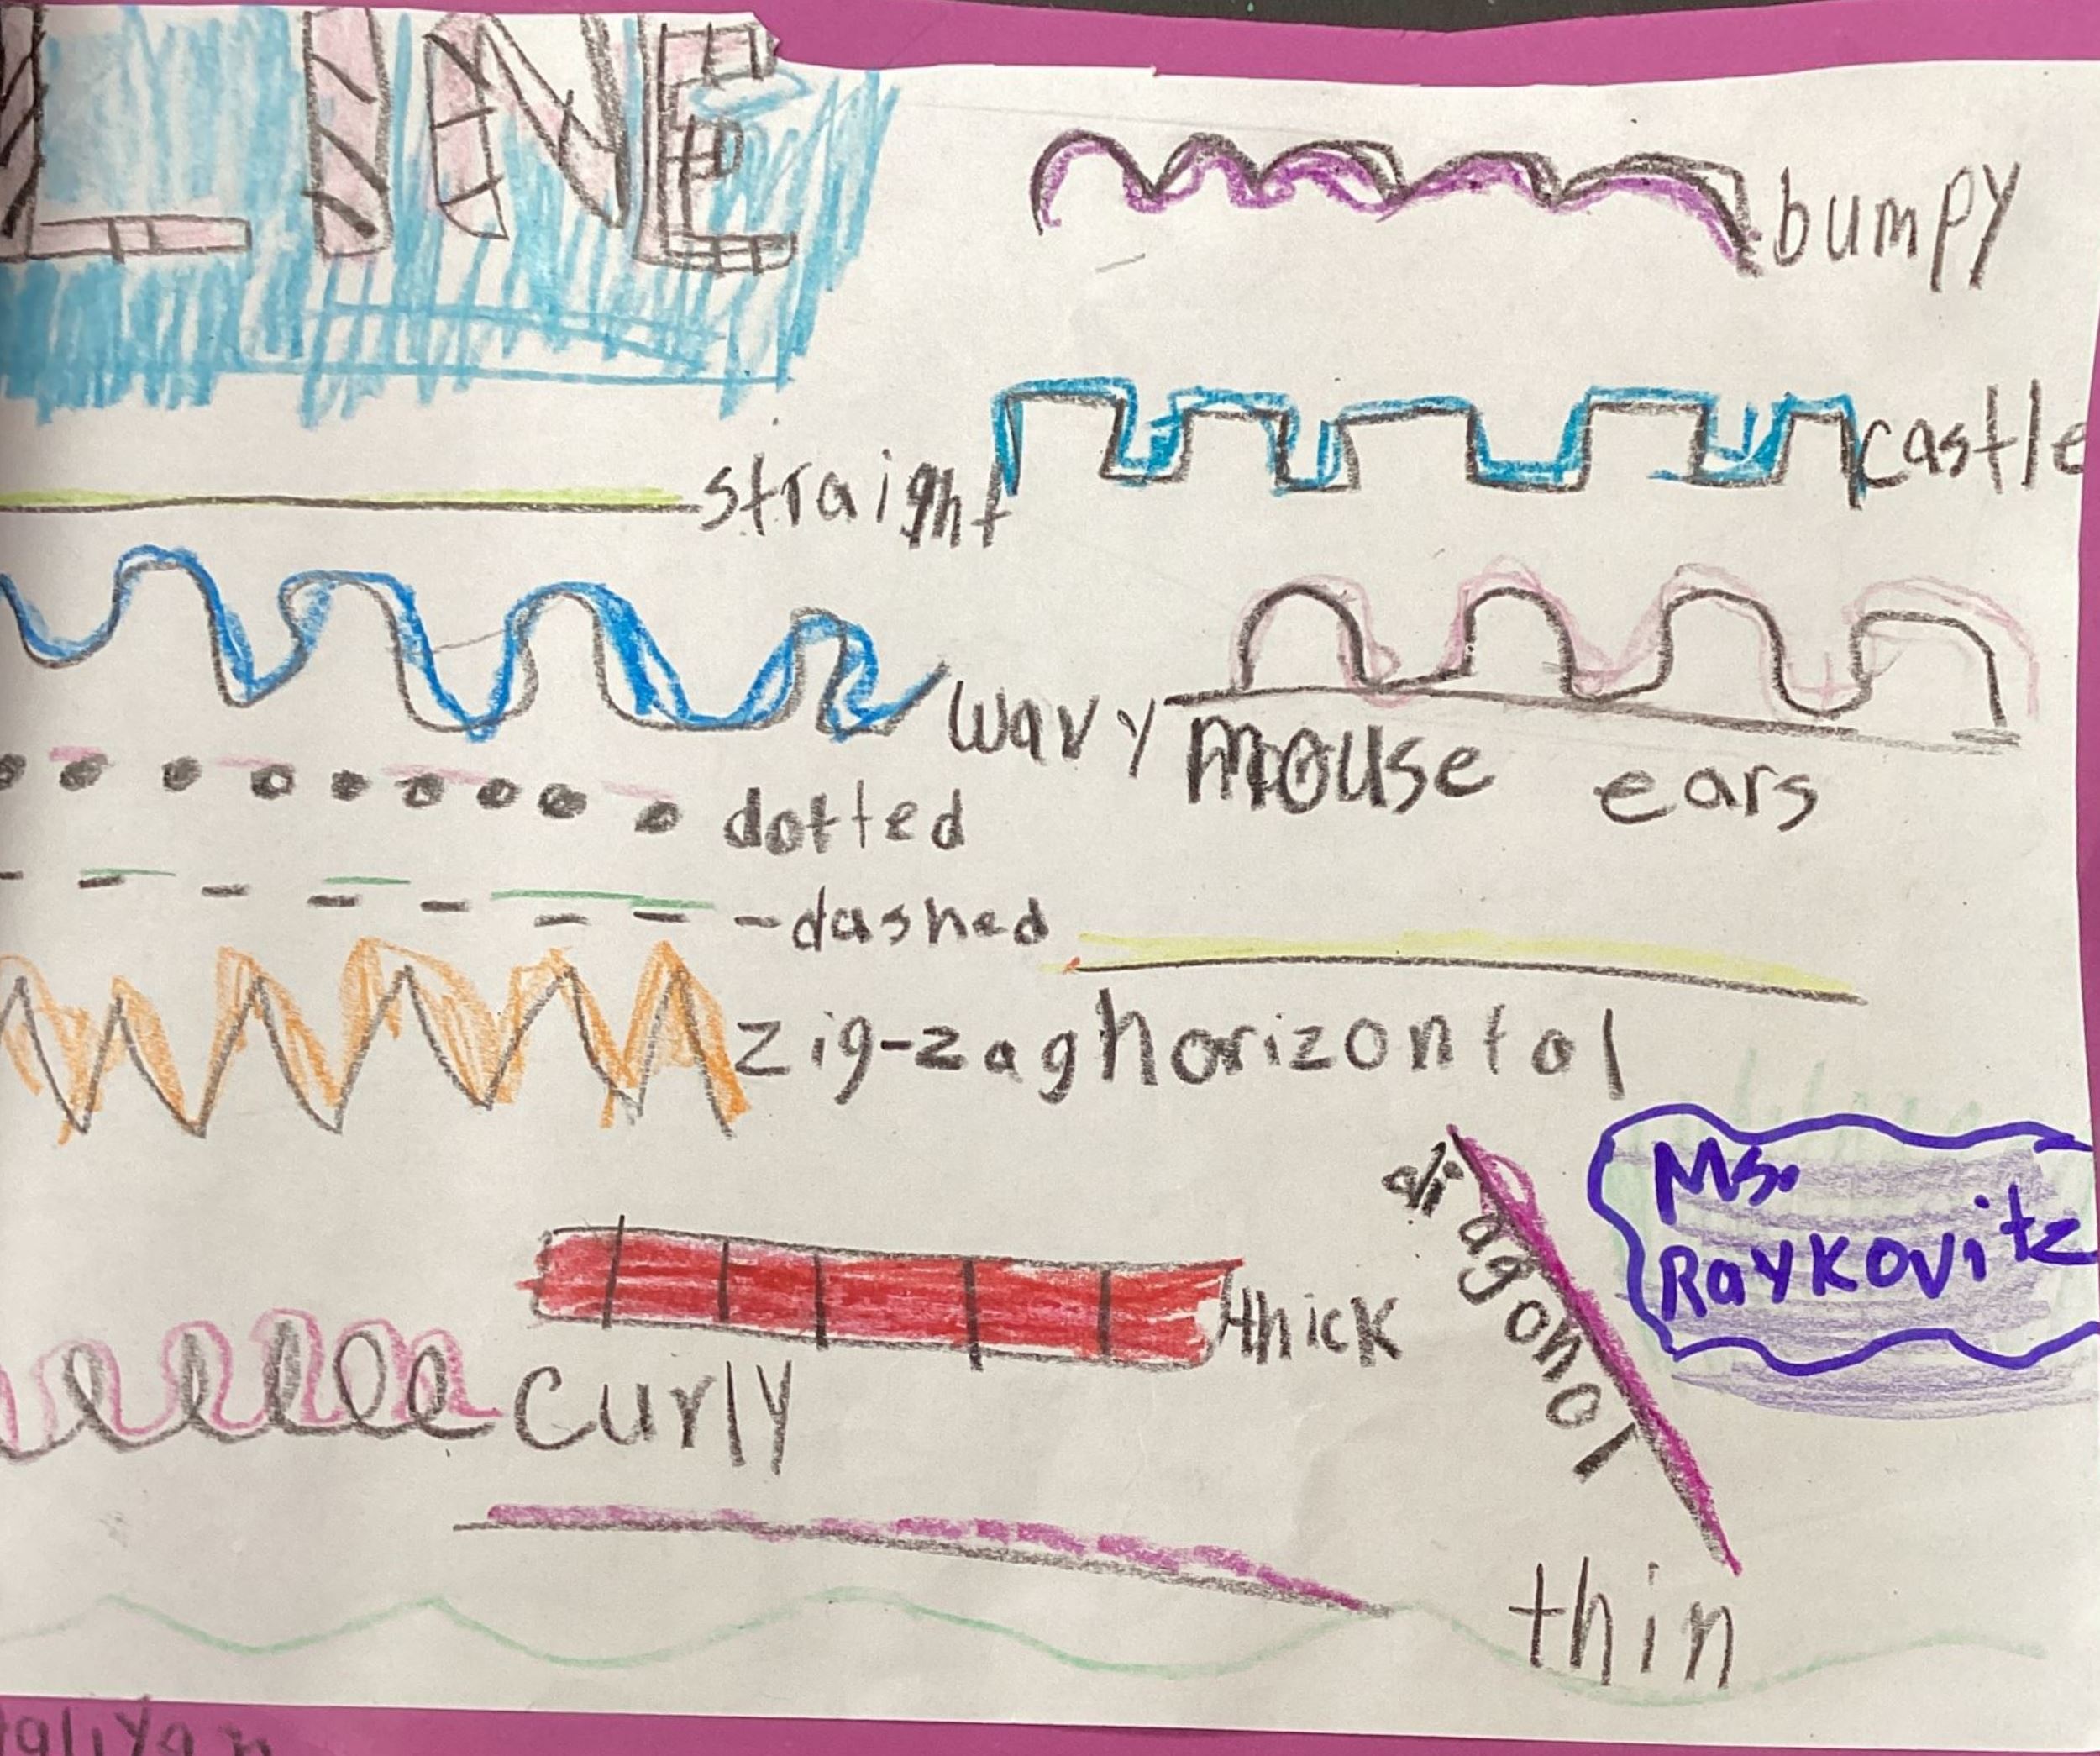 LINE
bumpy
castle
straight
wavy
mouse ears
dotted
dashed
zig-zag
horizontal
diagonal
Ms.
Raykovitz
thick
curly
thin